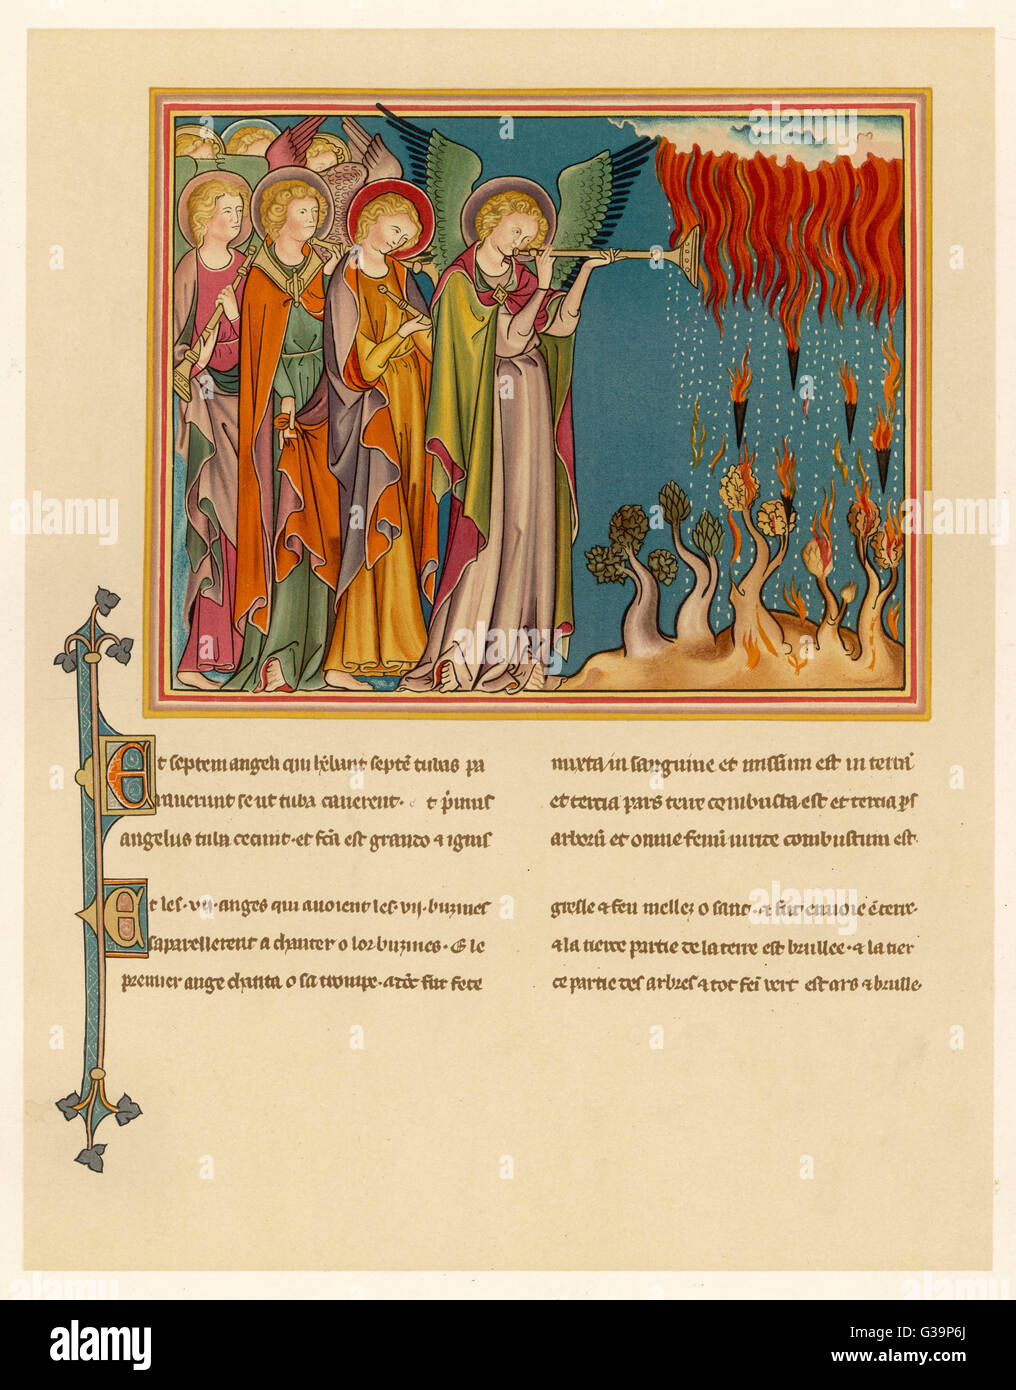 Et septem angeli qui hēbant septē tubas pa
raverunt se ut tuba canerent · Et p̄mus
angelus tuba cecinit · et fc̄a est grando ⁊ ignis
mixta in sanguine et missum est in terrā
et tercia pars terre combusta est et tercia ps
arborū et omne fenū viride combustum est ·
Et les · vij · anges qui avoient les · vij · buzines
sapareillerent a chanter o lor buzines · E le
premier ange chanta o sa trompe · fu fete
gresle ⁊ feu mellez o sanc · ⁊ fut envoie ē terre ·
⁊ la tierce partie de la terre est brullee · ⁊ la tier
ce partie des arbres ⁊ tot fein vert est ars ⁊ brulle ·
alamy
a
alamy
Image ID: G39P6J
www.alamy.com